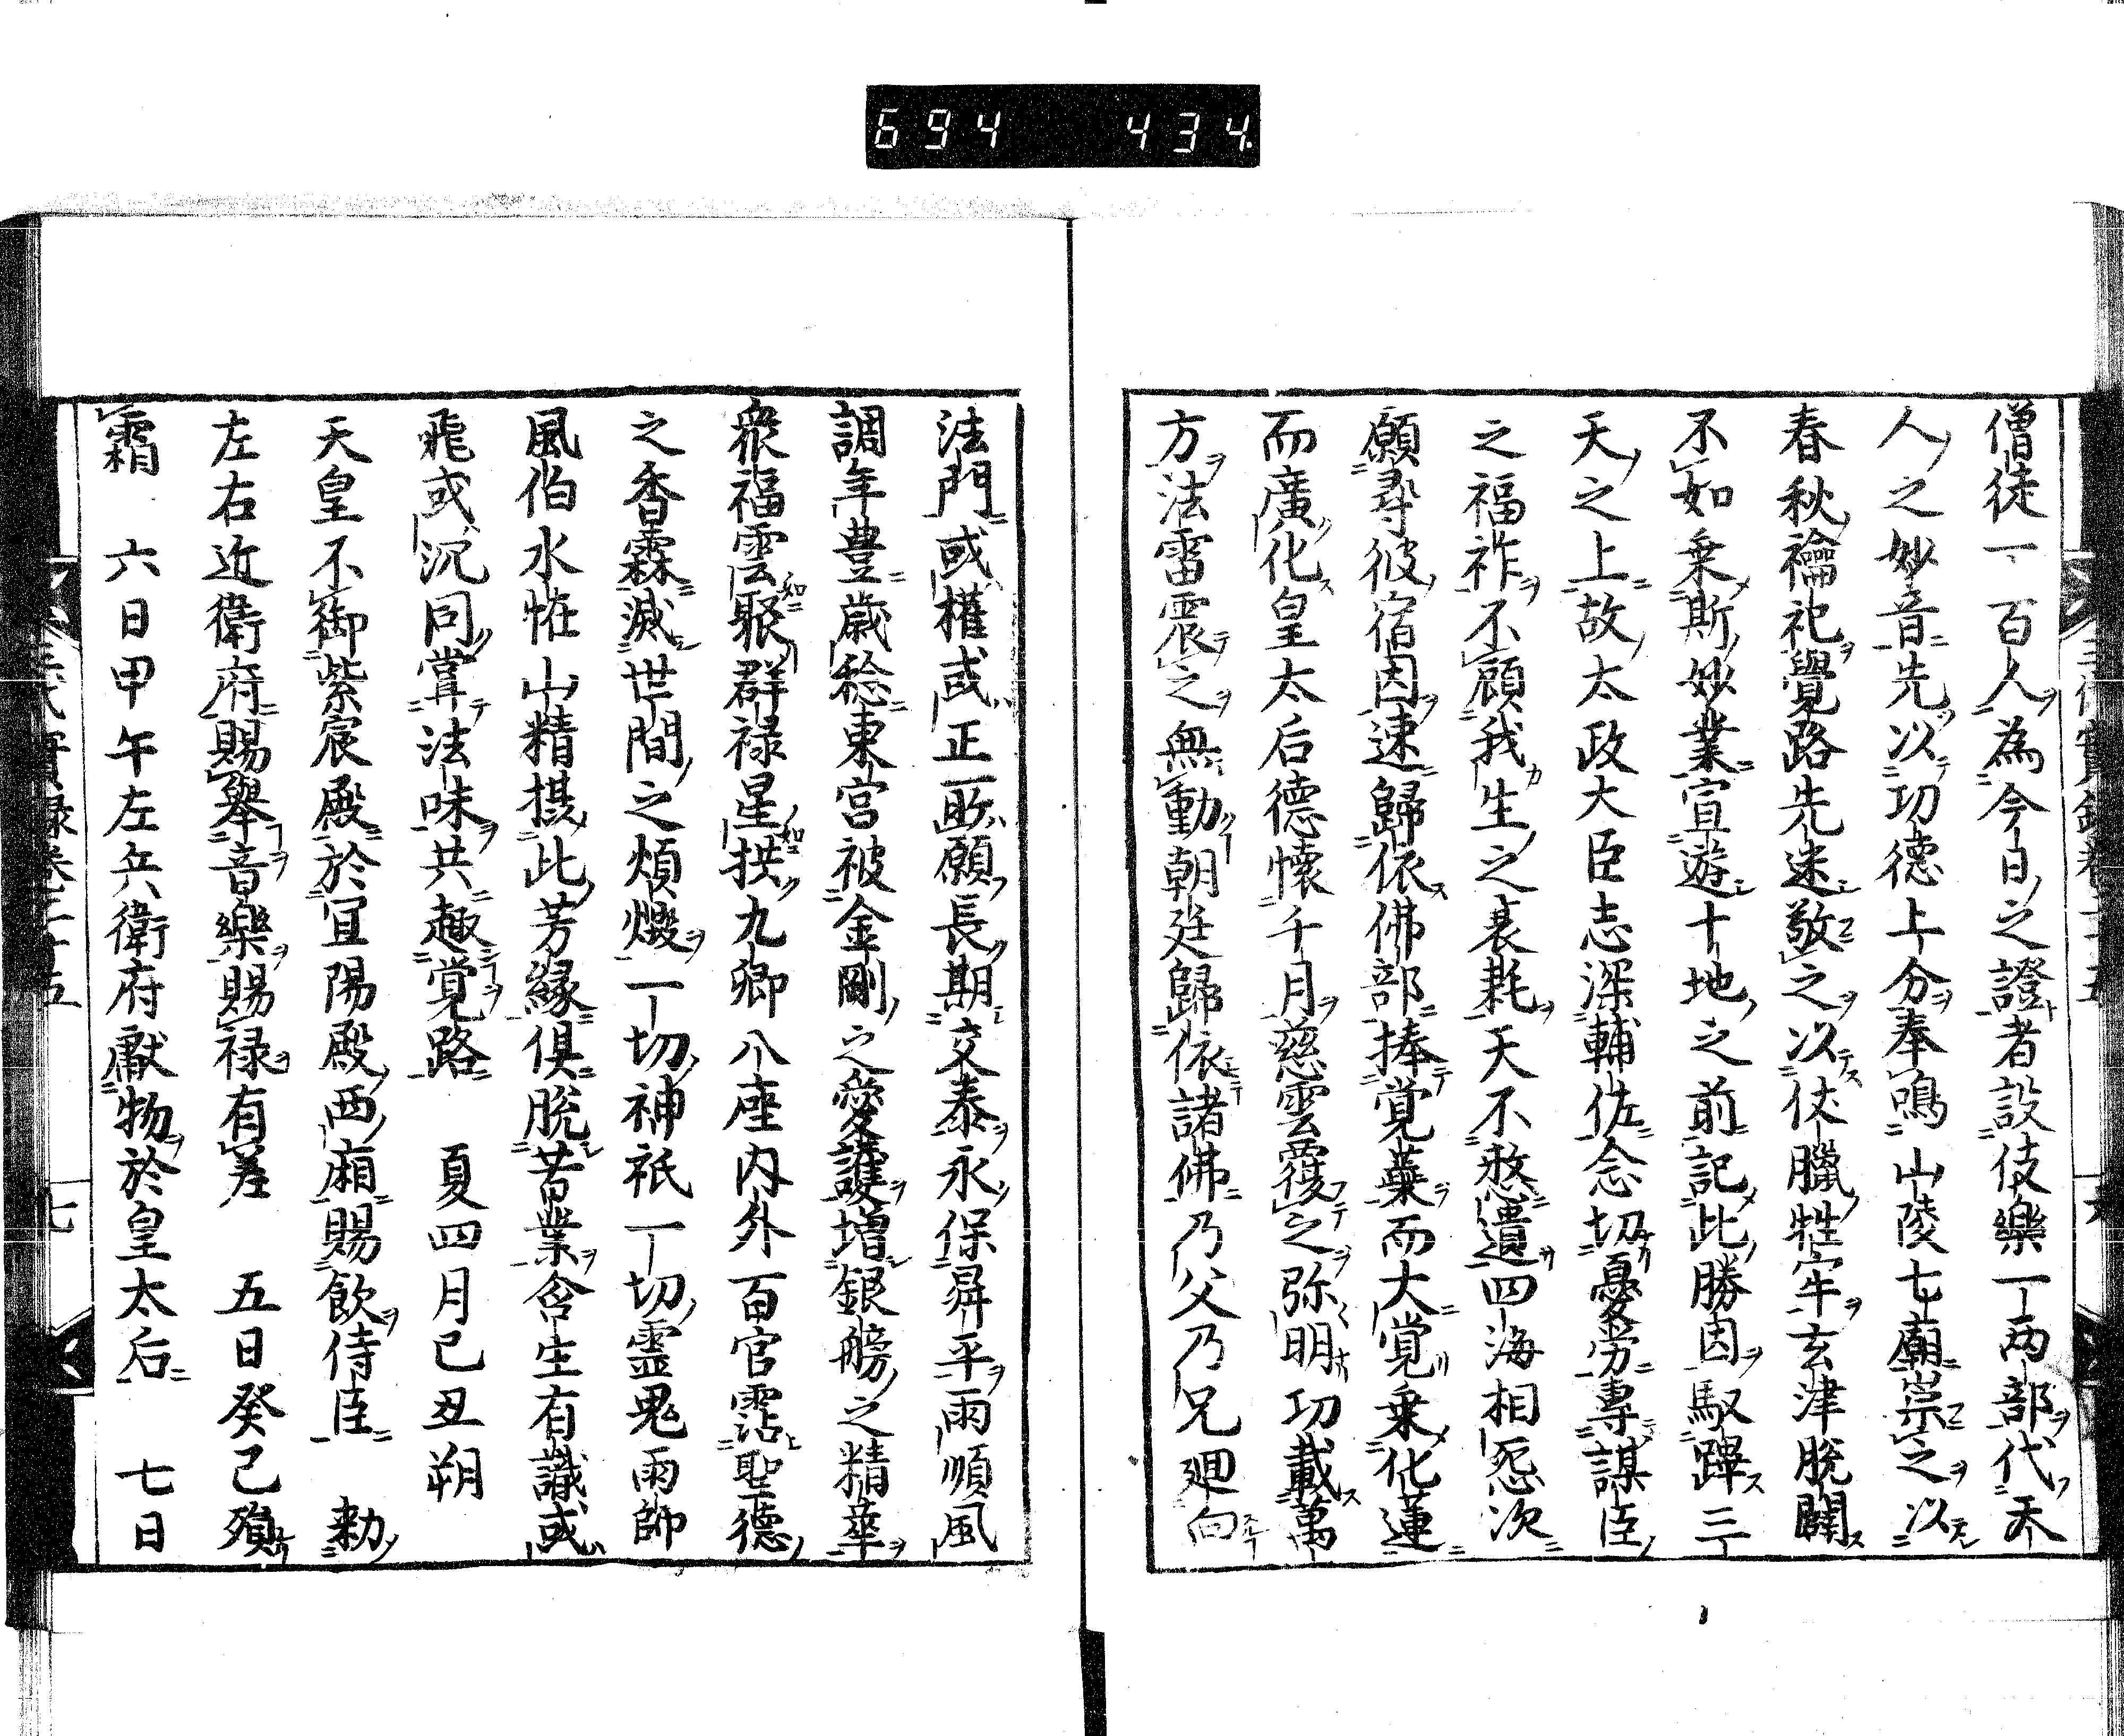 694 434
僧徒一百人為今日之證者設伎樂一兩部代天
人之妙音先以功德上分奉鳴山陵七廟崇之以
春秋禴祀覺路先迷敬之以伏臘牲牢玄津脫闕
不如乗斯妙業宣遊十地之前記此勝因馭蹕三
天之上故太政大臣志深輔佐念切憂勞專謀臣
之福祚不顧我生之衰耗天不憗遺四海相怨次
願尋彼宿因速歸依佛部捧覚蘂而大覚乗化蓮
而廣化皇太后德懷千月慈雲覆之弥明功載萬
方法雷震之無動朝廷歸依諸佛乃父乃兄廻向
法門或權或正所願長期交泰永保昇平雨順風
調年豊歳稔東宮被金剛之愛護増銀牓之精華
衆福雲聚群禄星拱九卿八座内外百官霑聖德
之香霖滅世間之煩燬一切神祇一切靈鬼雨師
風伯水恠山精摂此芳縁倶脫苦業含生有識或
飛或沉同甞法味共趣覚路　夏四月己丑朔
天皇不御紫宸殿於宜陽殿西廂賜飲侍臣　勅
左右近衛府賜舉音樂賜禄有差　五日癸己殞
霜　六日甲午左兵衛府獻物於皇太后　七日
三代實録卷三十五
七